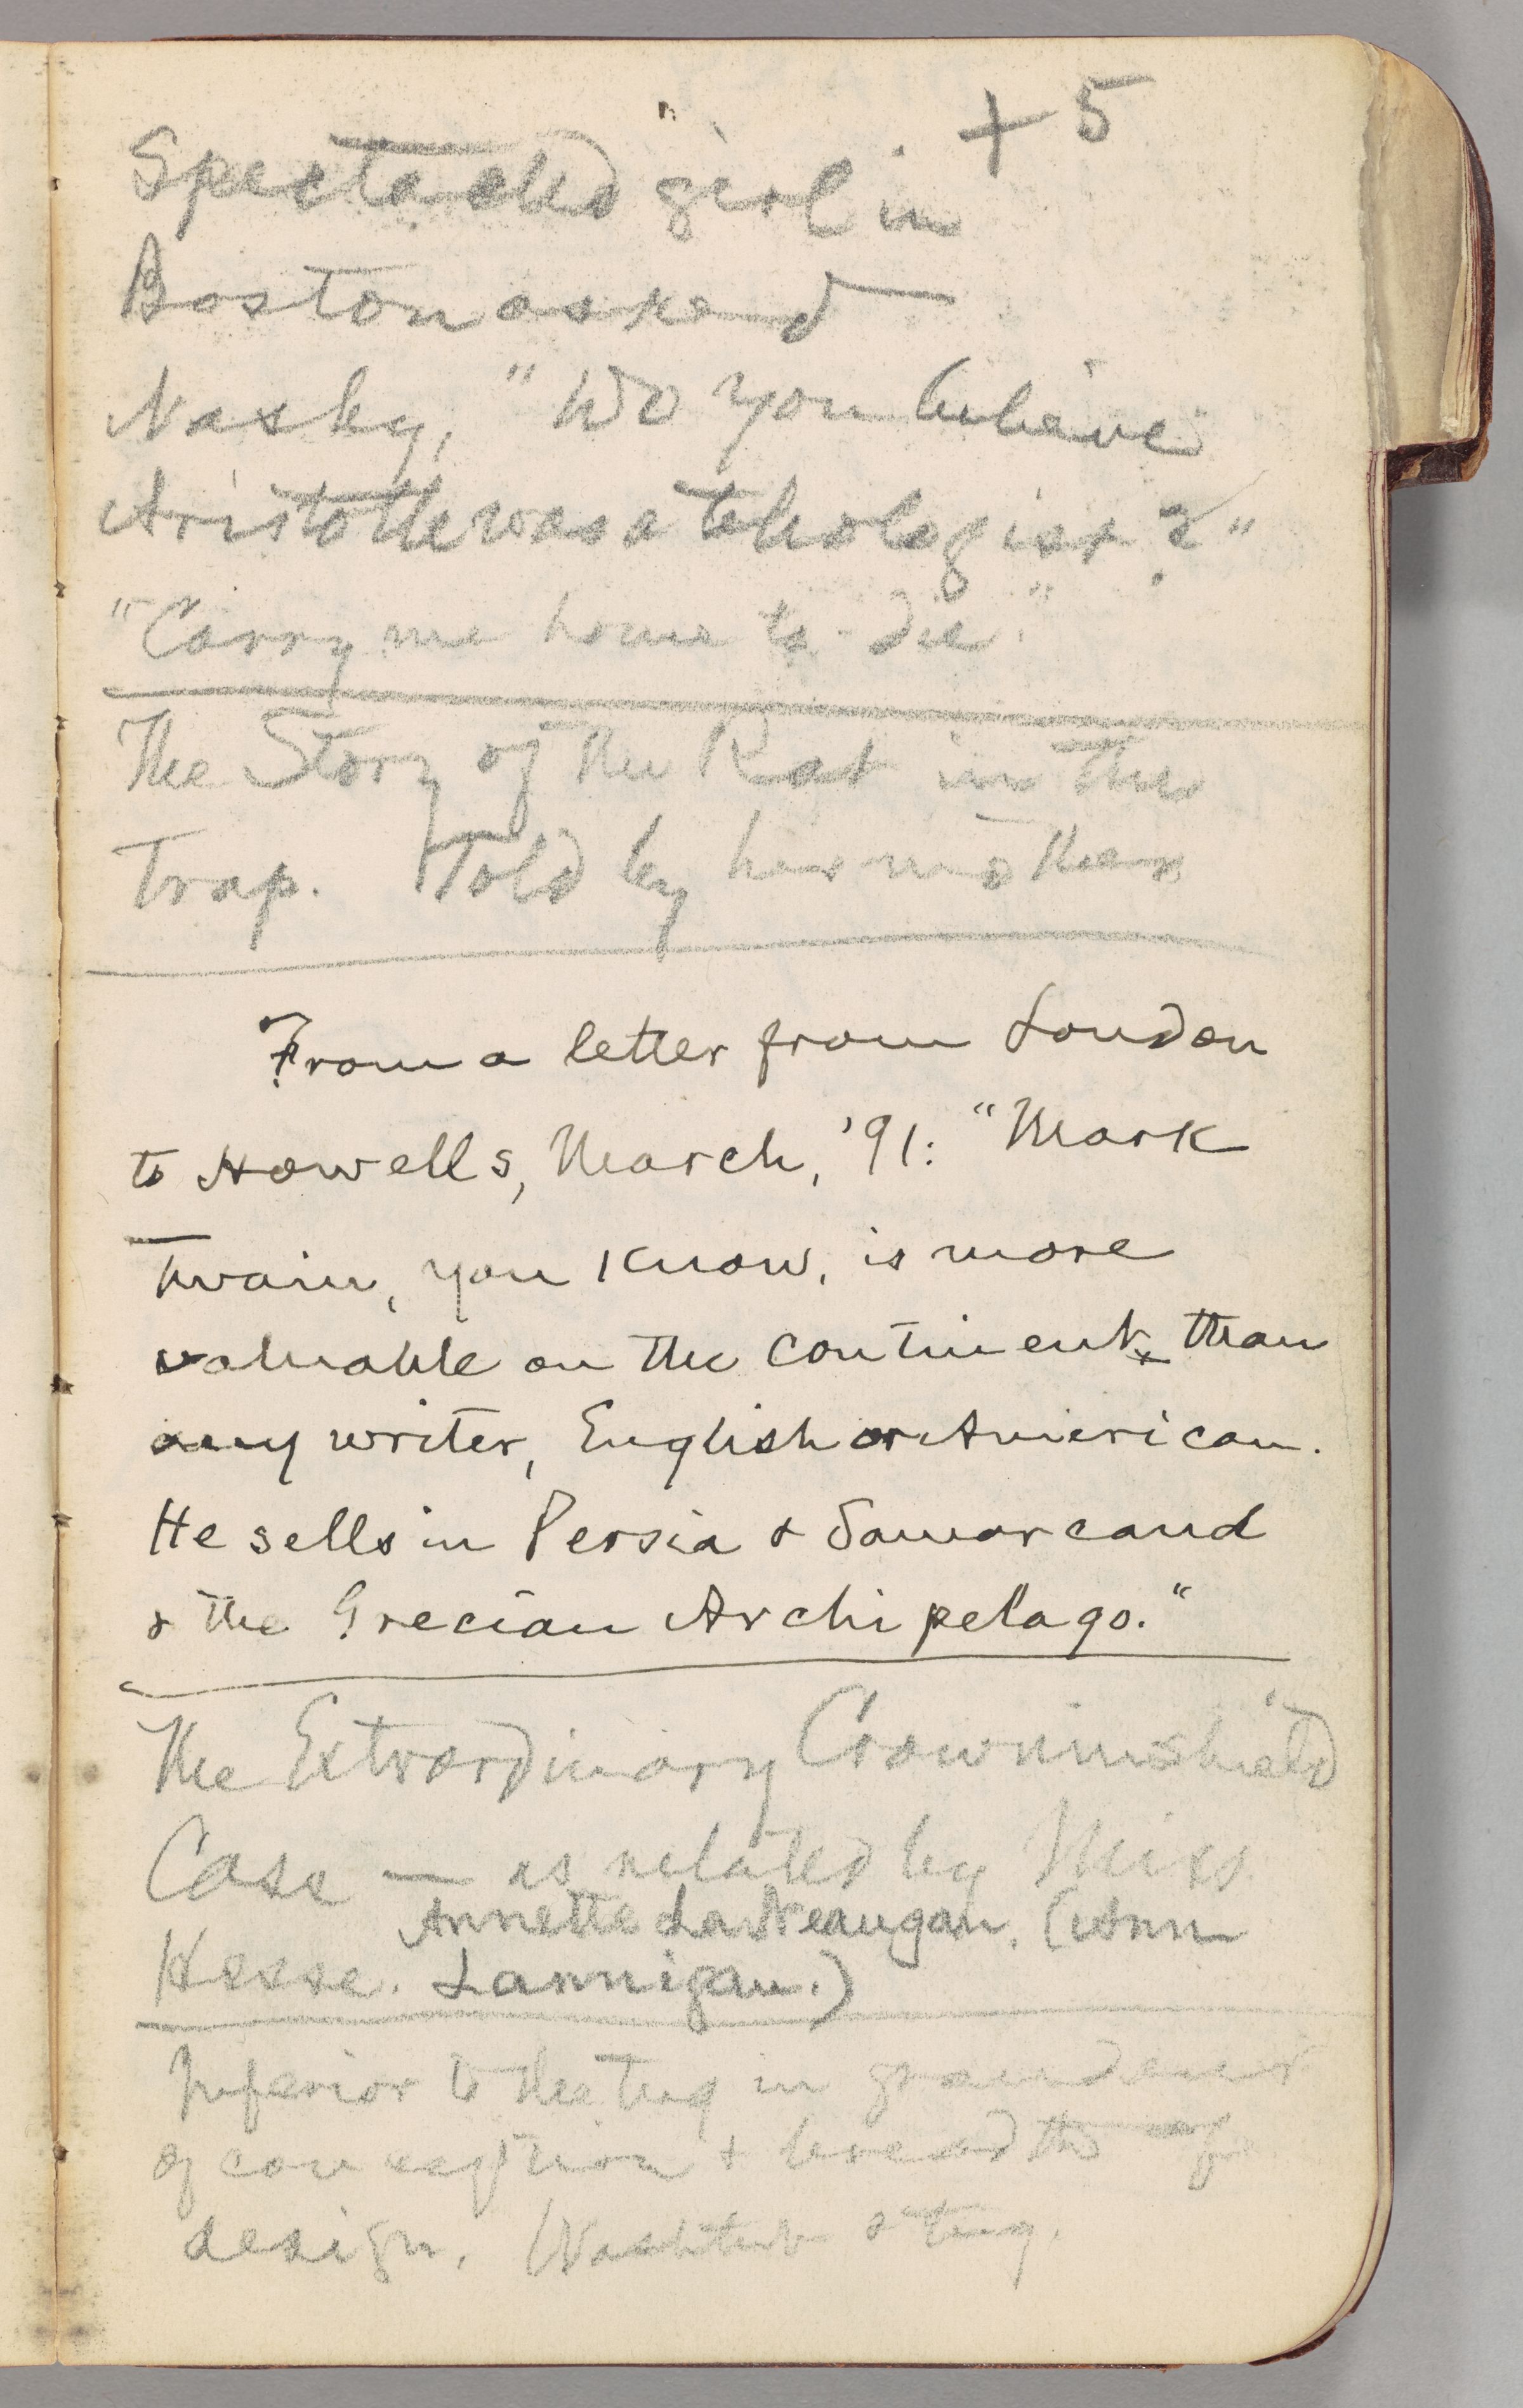 + 5
Spectacled girl in
Boston asked
Nasby, "Do you believe
Aristotle was a teleologist?"
"Carry me home to die."
The Story of the Rat in the
Trap. Told by her mother
From a letter from London
to Howells, March, '91: "Mark
Twain, you know, is more
valuable on the continent than
any writer, English or American.
He sells in Persia & Samarcand
& the Grecian Archipelago."
The Extraordinary Crowninshield
Case — as related by Miss
Annette (Ann
Hesse. Lannigan.)
Inferior to the tug in grandeur
of conception & breadth of
design. Washtub & tug.